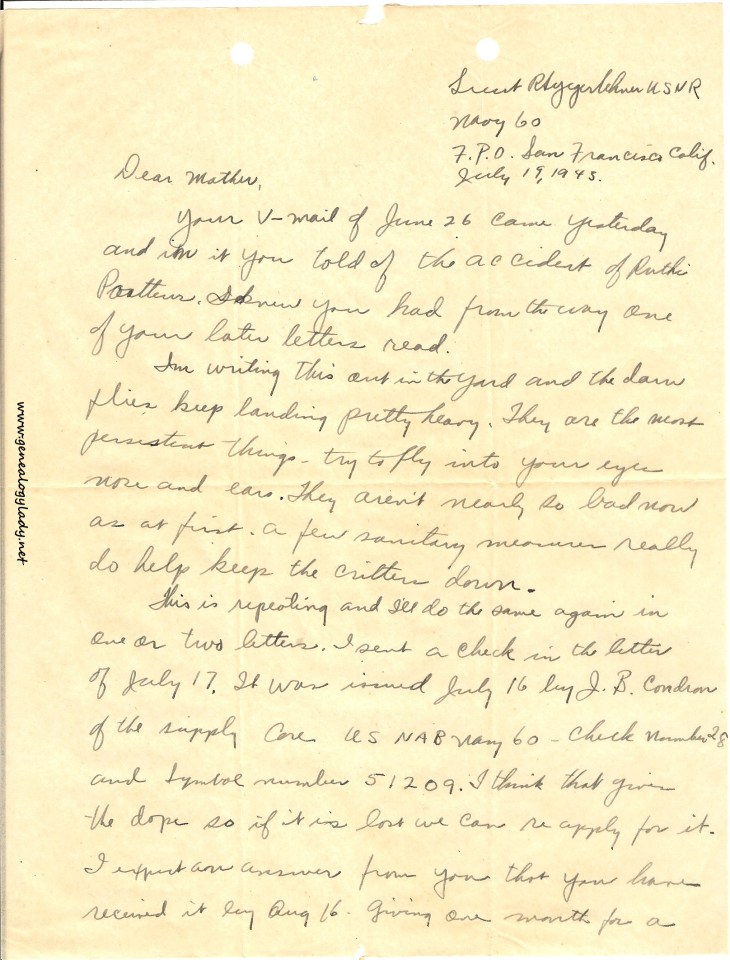 Lieut R Yegerlehner USNR
Navy 60
F.P.O. San Francisco Calif.
July 19, 1945.
Dear Mother,
Your V-mail of June 26 came yesterday
and in it you told of the accident of Ruthie
I knew you had from the way one
of your later letters read.
Im writing this out in the yard and the darn
flies keep landing pretty heavy. They are the most
persistent things - try to fly into your eyes
nose and ears. They aren't nearly so bad now
as at first. A few sanitary measures really
do help keep the critters down.
This is repeating and I'll do the same again in
one or two letters. I sent a check in the letter
of July 17. It was issued July 16 by J. B. Condron
of the supply Core US NAB Navy 60 - Check Number 28
and Symbol number 51209. I think that gives
the dope so if it is lost we can re apply for it.
I expect an answer from you that you have
received it by Aug 16. Giving one month for a
www.genealogylady.net